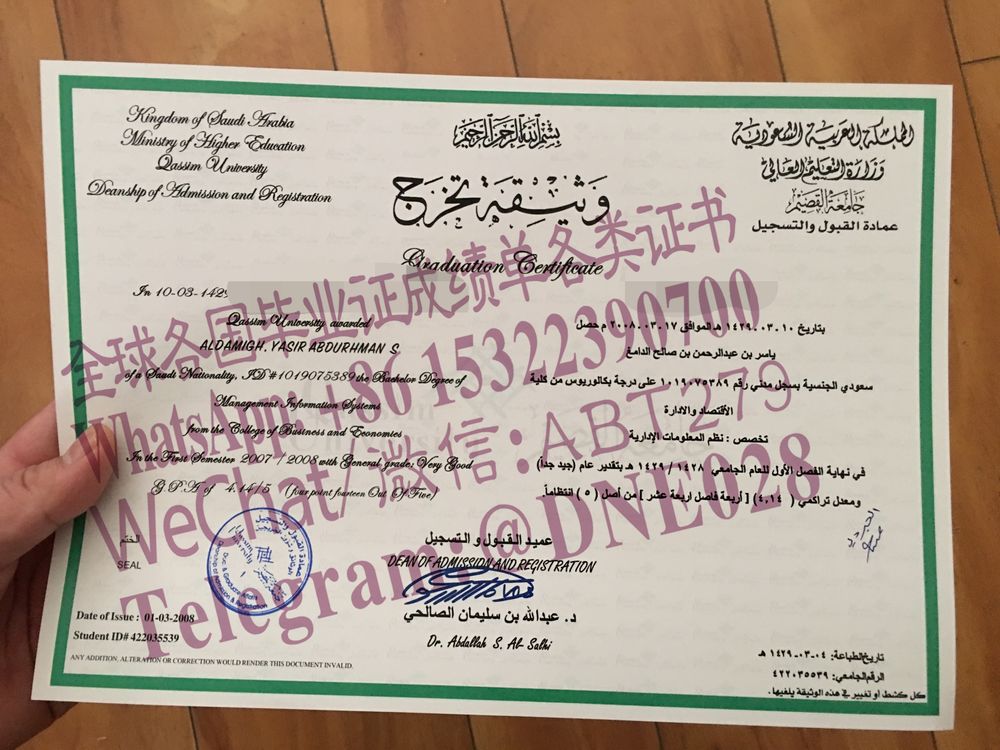 Kingdom of Saudi Arabia
Ministry of Higher Education
Qassim University
Deanship of Admission and Registration
بسم الله الرحمن الرحيم
المملكة العربية السعودية
وزارة التعليم العالي
جامعة القصيم
عمادة القبول والتسجيل
وثيقة تخرج
Graduation Certificate
In 10-03-1429
Qassim University awarded
ALDAMIGH, YASIR ABDURHMAN S
of a Saudi Nationality, ID #1019075389 the Bachelor Degree of
Management Information Systems
from the College of Business and Economies
In the First Semester 2007 / 2008 with General grade: Very Good
G.P.A of 4.14/5 (four point fourteen Out Of Five)
بتاريخ ١٠-٠٣-١٤٢٩ هـ الموافق ١٧-٠٣-٢٠٠٨ م حصل
ياسر بن عبدالرحمن بن صالح الدامغ
سعودي الجنسية بسجل مدني رقم ١٠١٩٠٧٥٣٨٩ على درجة بكالوريوس من كلية
الأقتصاد والادارة
تخصص : نظم المعلومات الإدارية
في نهاية الفصل الأول للعام الجامعي ١٤٢٨ / ١٤٢٩ هـ بتقدير عام (جيد جداً)
ومعدل تراكمي ( ٤,١٤ ) [ أربعة فاصل اربعة عشر ] من أصل ( ٥ ) انتظاماً.
الختم
SEAL
عميد القبول و التسجيل
DEAN OF ADMISSION AND REGISTRATION
د. عبدالله بن سليمان الصالحي
Dr. Abdallah S. Al-Salhi
Date of Issue : 01-03-2008
Student ID# 422035539
ANY ADDITION, ALTERATION OR CORRECTION WOULD RENDER THIS DOCUMENT INVALID.
تاريخ الطباعة: ٠٤-٠٣-١٤٢٩ هـ
الرقم الجامعي: ٤٢٢٠٣٥٥٣٩
كل كشط او تغيير في هذه الوثيقة يلغيها.
全球各国毕业证成绩单各类证书
WhatsApp:+86 15322390700
WeChat/微信:ABT279
Telegram:@DNE028